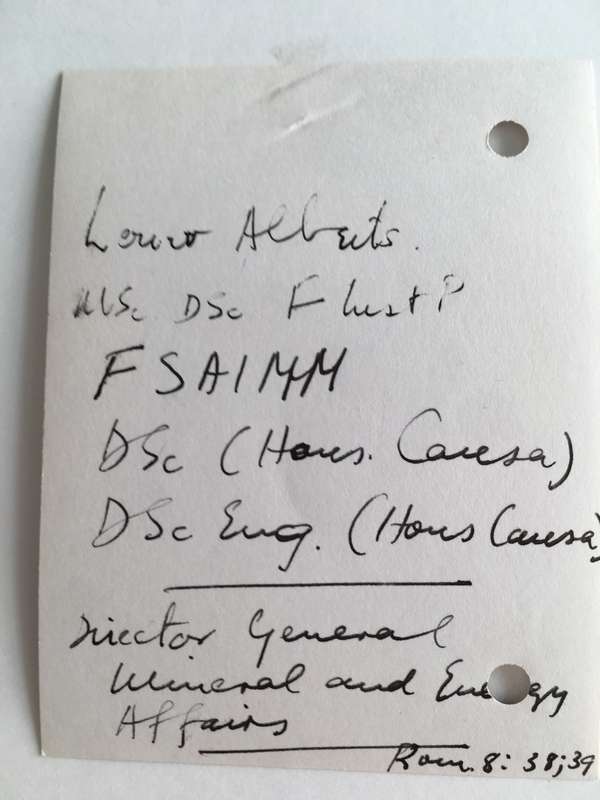 Louw Alberts.
MSc DSc F Inst P
FSAIMM
DSc (Honrs. Causa)
DSc Eng. (Honrs Causa)
Director General
Mineral and Energy
Affairs
Rom. 8: 38;39